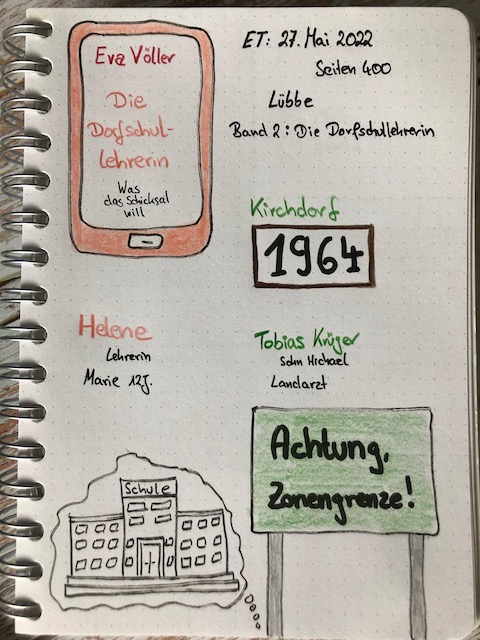 Eva Völler
Die
Dorfschul-
lehrerin
Was
das Schicksal
will
ET: 27. Mai 2022
Seiten 400
Lübbe
Band 2: Die Dorfschullehrerin
Kirchdorf
1964
Helene
Lehrerin
Marie 12J.
Tobias Krüger
Sohn Michael
Landarzt
Schule
Achtung,
Zonengrenze!